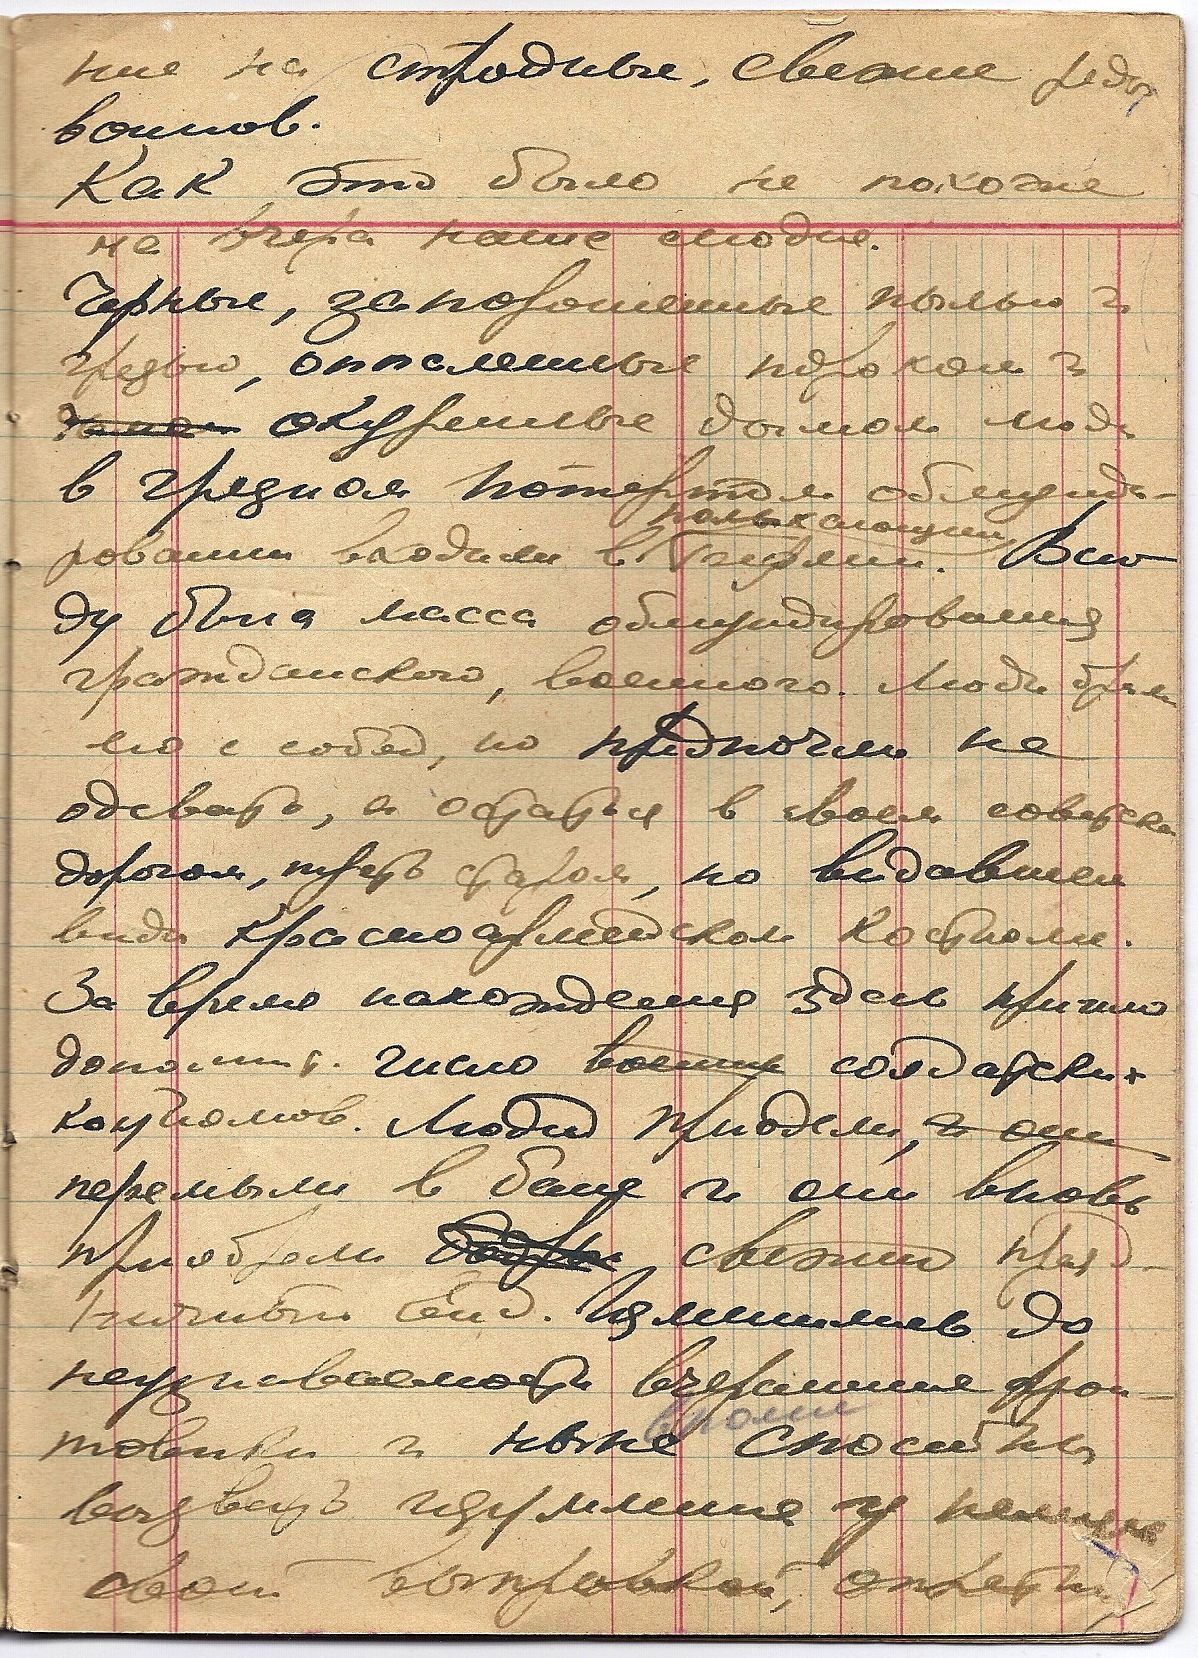 ние на стройные, свежие ряды
воинов.
Как это было не похоже
на вчера наше сегодня.
Черные, запорошенные пылью и
грязью, опаленные порохом и
окуренные дымом люди
в грязном потертом обмунди-
полыхающий
ровании входили в Берлин. Всю-
ду была масса обмундирования
гражданского, военного. Люди брали
его с собой, но предпочли не
одевать, а остаться в своем советском
дорогом, пусть старом, но видавшем
виды красноармейском костюме.
За время нахождения здесь пришло
дополнит. число военных солдатских
костюмов. Людей приодели, и они
перемыли в бане и они вновь
приобрели свежий празд-
ничный вид. Изменились до
неузнаваемости вчерашние фрон-
вполне
товики и ныне способны
вызвать изумление у немцев
своей выправкой, опрятн